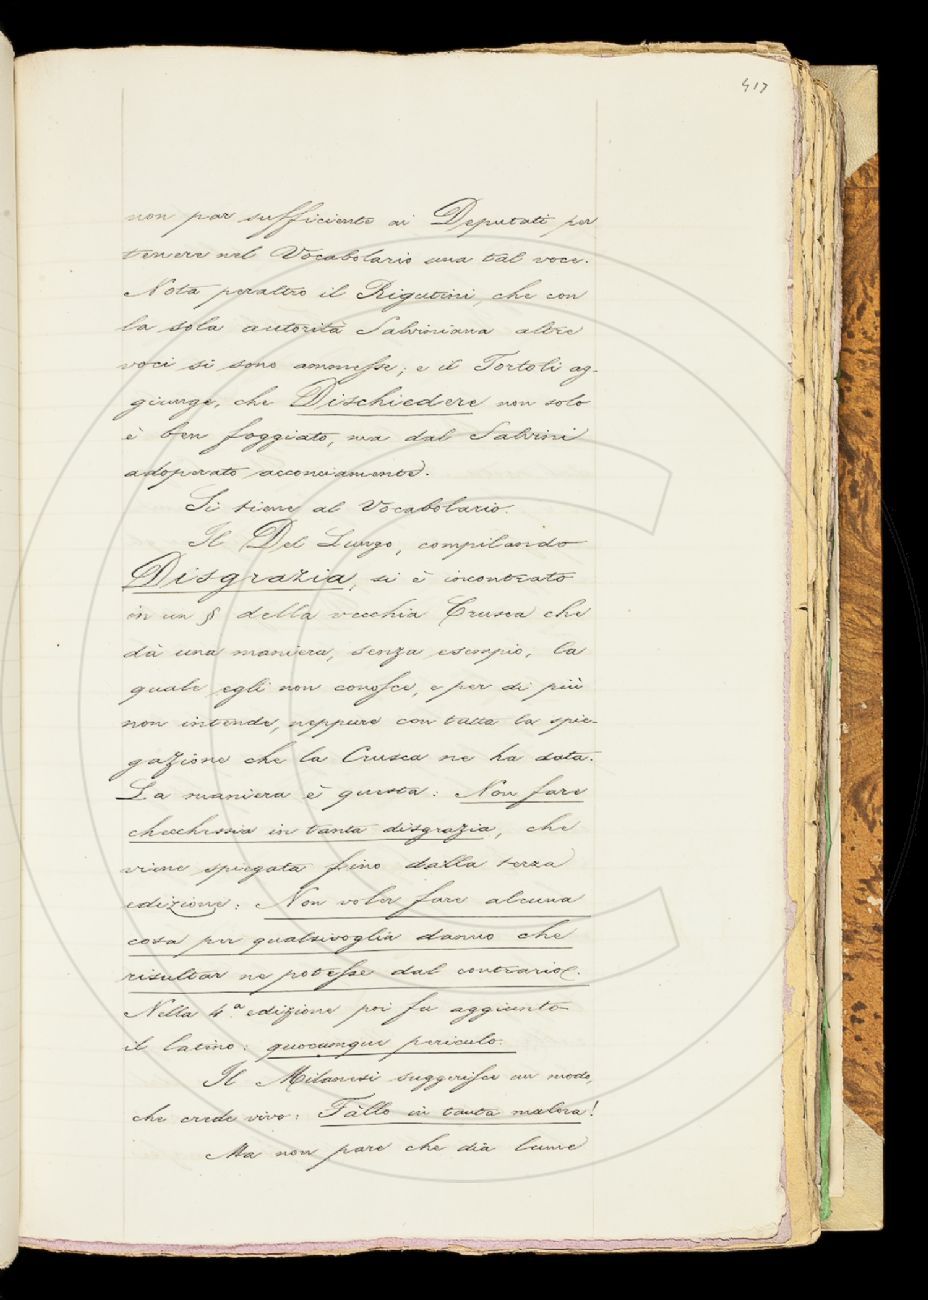 417
non par sufficiente ai Deputati per
tenere nel Vocabolario una tal voce.
Nota peraltro il Rigutini, che con
la sola autorità Salviniana altre
voci si sono ammesse; e il Tortoli ag-
giunge, che Dischiedere non solo
è ben foggiato, ma dal Salvini
adoperato acconciamente.
Si tiene al Vocabolario.
Il Del Lungo, compilando
Disgrazia, si è incontrato
in un § della vecchia Crusca che
dà una maniera, senza esempio, la
quale egli non conosce, e per di più
non intende, neppure con tutta la spie-
gazione che la Crusca ne ha data.
La maniera è questa: Non fare
checchessia in tanta disgrazia, che
viene spiegata fino dalla terza
edizione: Non voler fare alcuna
cosa per qualsivoglia danno che
risultar ne potesse dal contrario.
Nella 4.ª edizione poi fu aggiunto
il latino: quocumque periculo.
Il Milanesi suggerisce un modo,
che crede vivo: Fàllo in tanta malora!
Ma non pare che dia lume